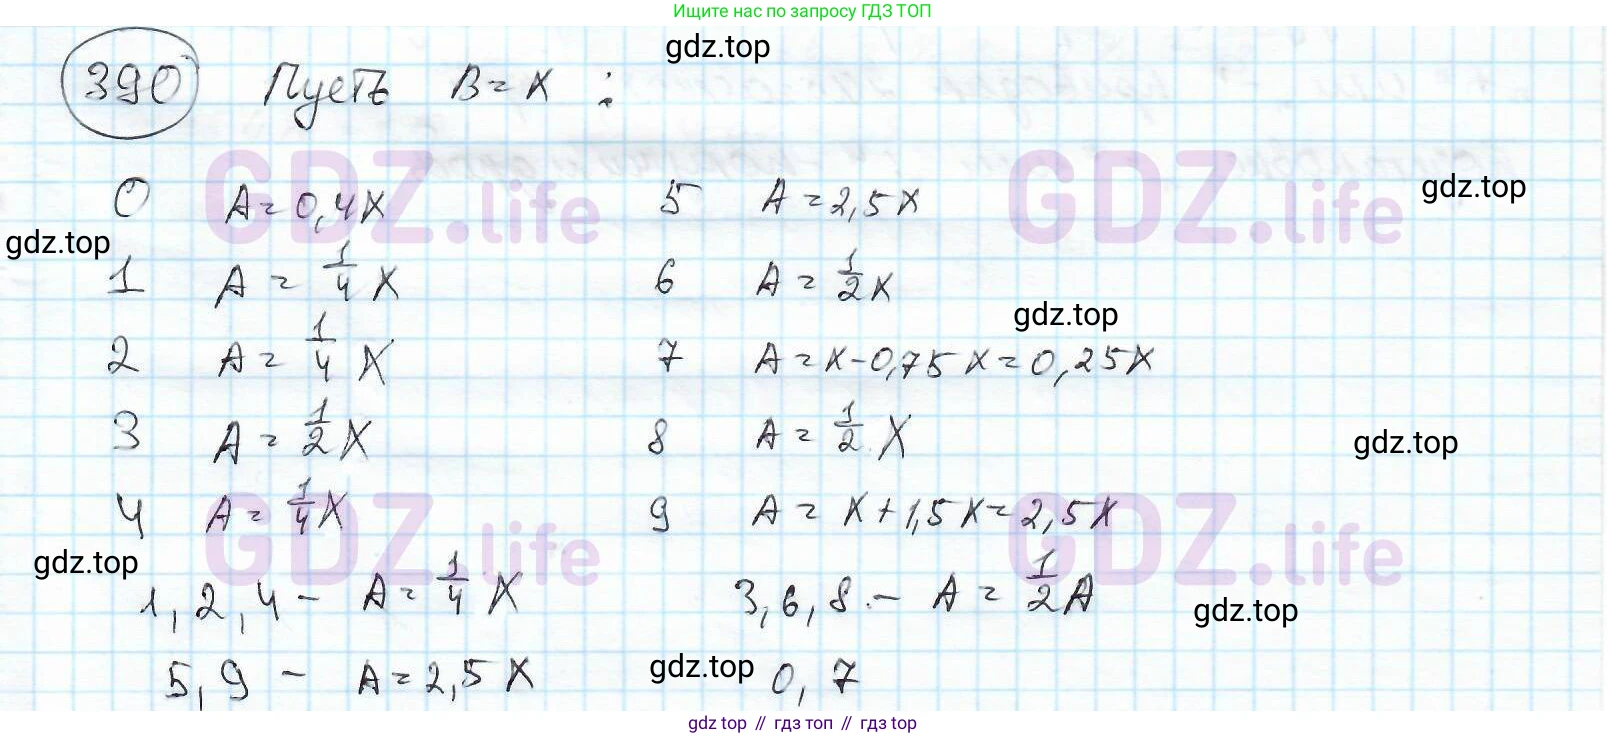 Ищите нас по запросу ГДЗ ТОП
gdz.top
390 Пусть B = X :
GDZ.life GDZ.life
0 A = 0,4X 5 A = 2,5X
gdz.top
gdz.top
1 A = 1/4 X 6 A = 1/2 X
gdz.top
2 A = 1/4 X 7 A = X - 0,75X = 0,25X
3 A = 1/2 X 8 A = 1/2 X
gdz.top
4 A = 1/4 X 9 A = X + 1,5X = 2,5X
GDZ.life GDZ.life
gdz.top
1, 2, 4 - A = 1/4 X 3, 6, 8. - A = 1/2 A
gdz.top
5, 9 - A = 2,5X 0, 7
gdz.top
gdz top // гдз топ // gdz top